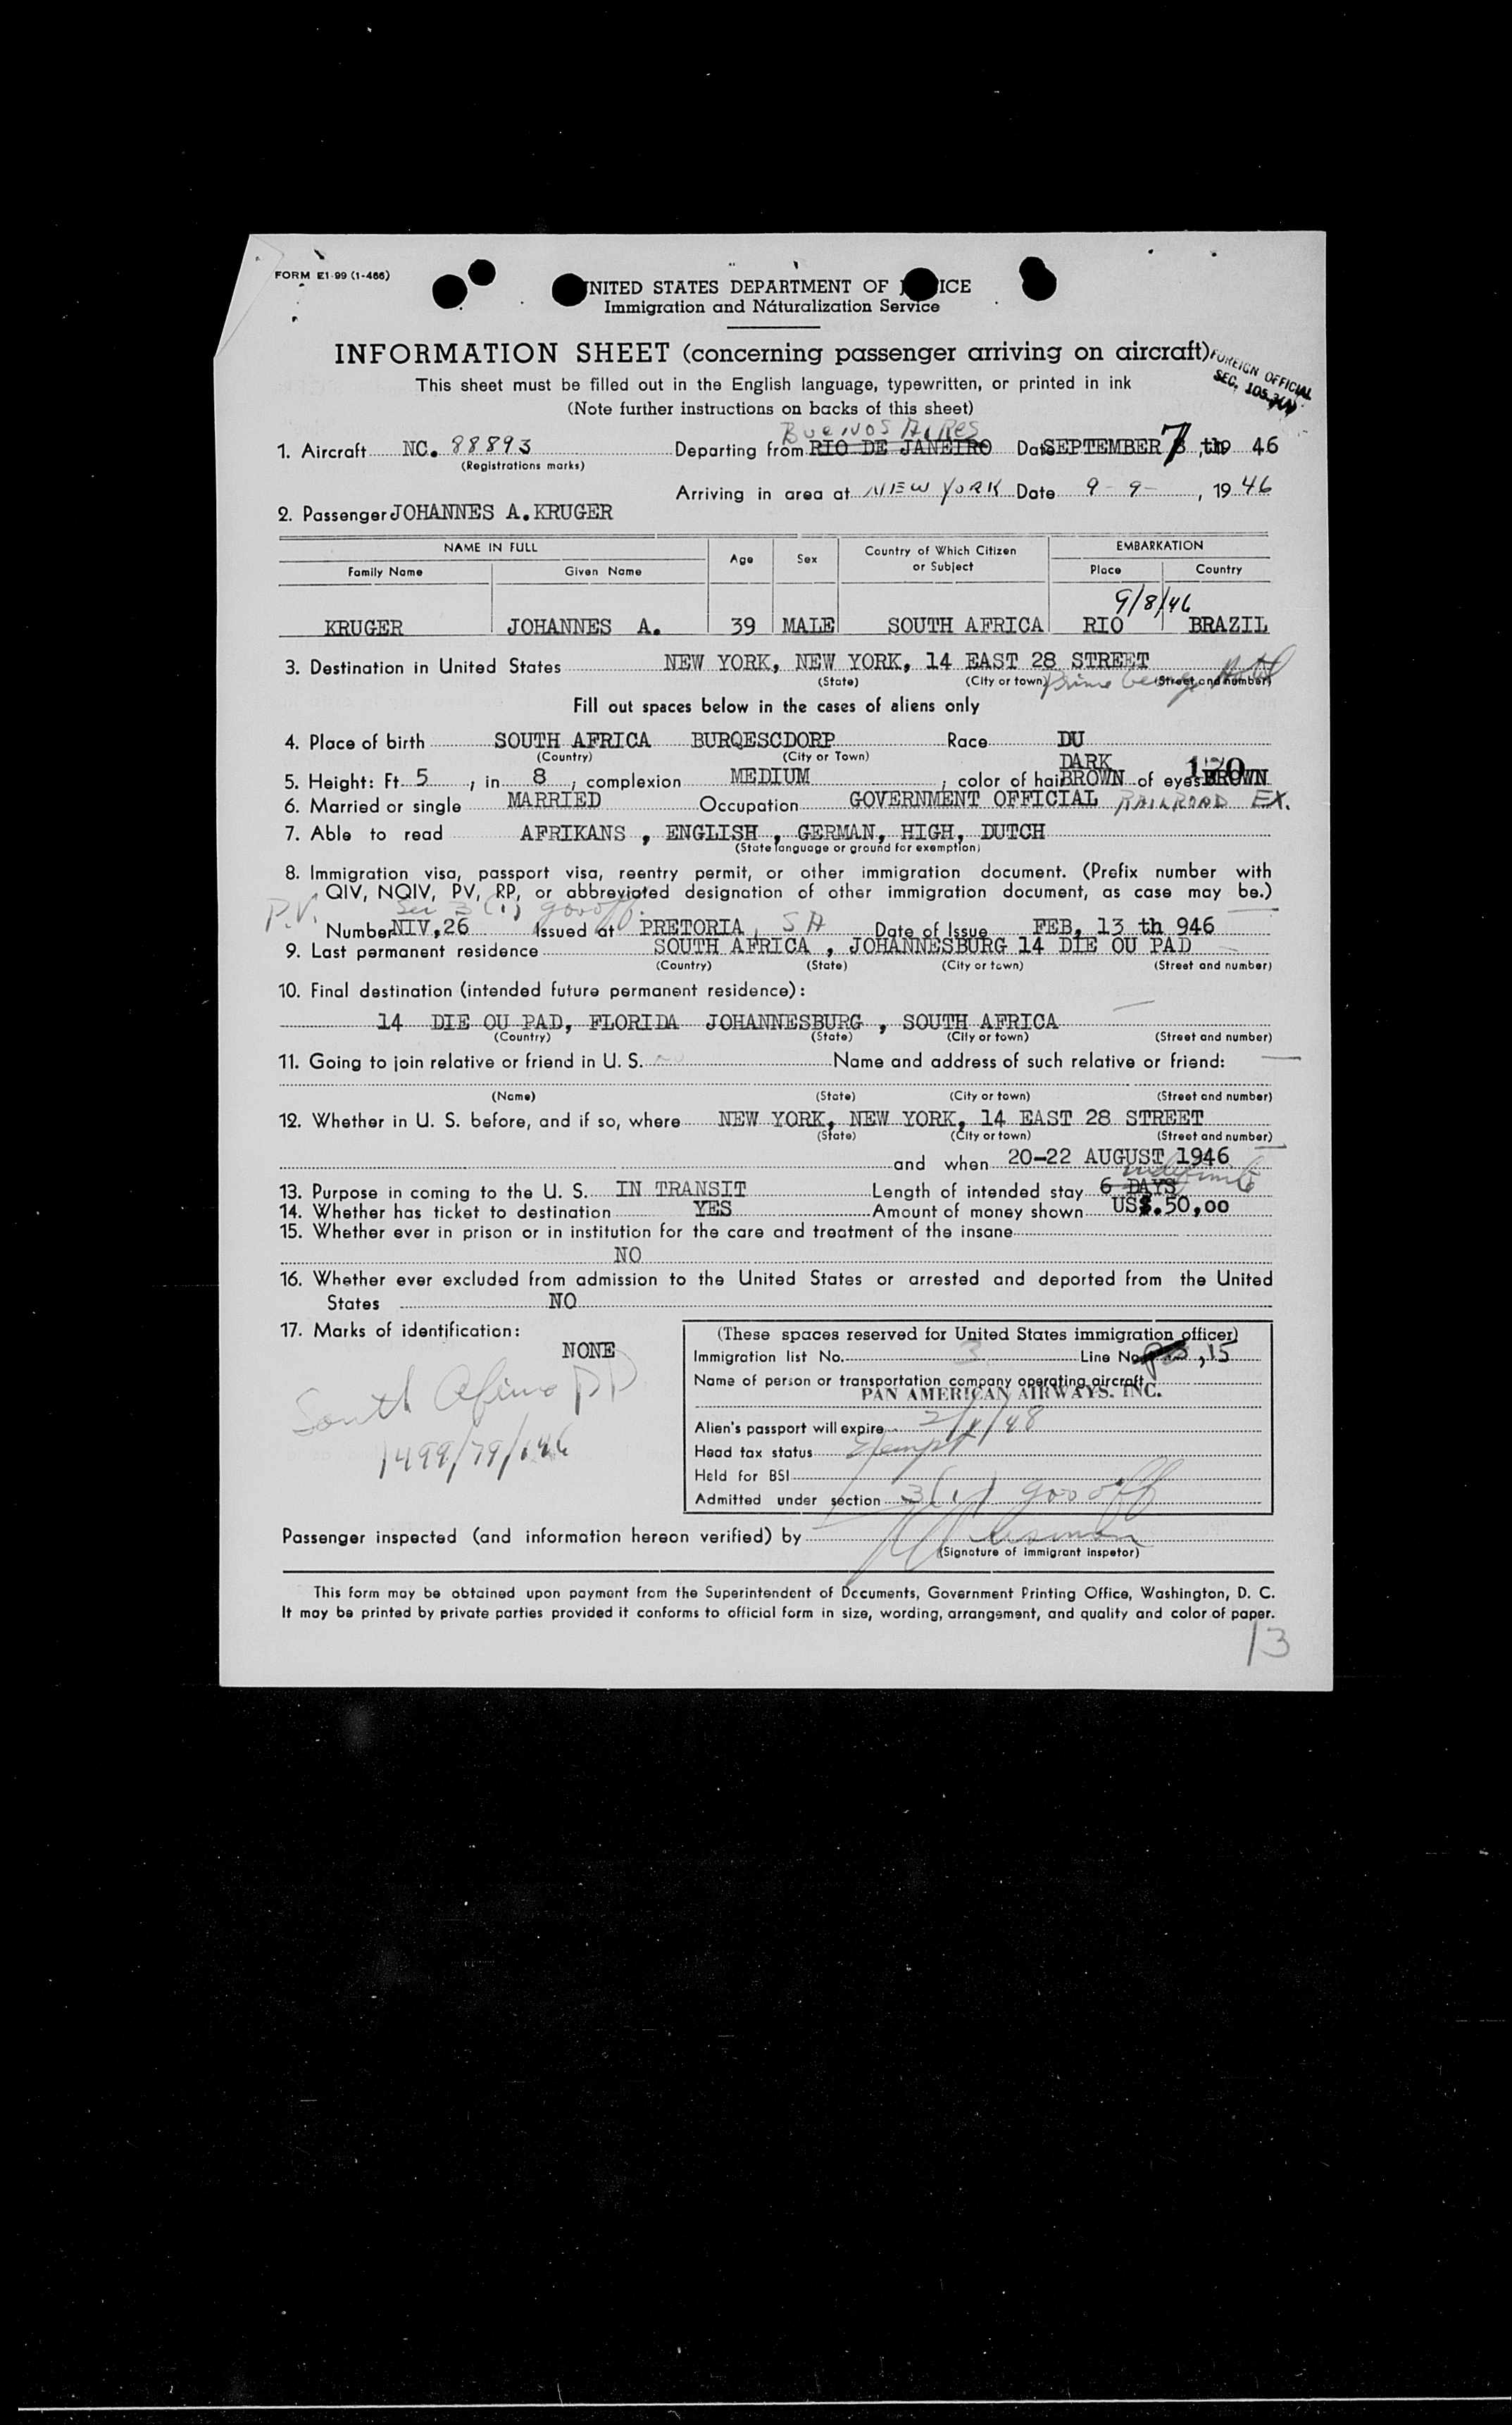 FORM E1-99 (1-466)
UNITED STATES DEPARTMENT OF J ICE
Immigration and Naturalization Service
INFORMATION SHEET (concerning passenger arriving on aircraft)
FOREIGN OFFICIAL
SEC. 105.3(A)
This sheet must be filled out in the English language, typewritten, or printed in ink
(Note further instructions on backs of this sheet)
BUENOS AIRES
1. Aircraft NC. 88893 Departing from RIO DE JANEIRO Date SEPTEMBER 7 8 ,th 19 46
(Registrations marks)
Arriving in area at NEW YORK Date 9-9- , 19 46
2. Passenger JOHANNES A. KRUGER
NAME IN FULL Age Sex Country of Which Citizen or Subject EMBARKATION
Family Name Given Name Place Country
9/8/46
KRUGER JOHANNES A. 39 MALE SOUTH AFRICA RIO BRAZIL
3. Destination in United States NEW YORK, NEW YORK, 14 EAST 28 STREET
(State) (City or town) (Street and number)
Prince George Hotel
Fill out spaces below in the cases of aliens only
4. Place of birth SOUTH AFRICA BURQESCDORP Race DU
(Country) (City or Town)
DARK 120
5. Height: Ft. 5 , in 8 ; complexion MEDIUM ; color of hair BROWN of eyes BROWN
6. Married or single MARRIED Occupation GOVERNMENT OFFICIAL RAILROAD EX.
7. Able to read AFRIKANS , ENGLISH , GERMAN, HIGH, DUTCH
(State language or ground for exemption)
8. Immigration visa, passport visa, reentry permit, or other immigration document. (Prefix number with
QIV, NQIV, PV, RP, or abbreviated designation of other immigration document, as case may be.)
P.V. Sec 3 (1) gov off.
Number NIV,26 Issued at PRETORIA, SA Date of Issue FEB, 13 th 946
9. Last permanent residence SOUTH AFRICA , JOHANNESBURG 14 DIE OU PAD
(Country) (State) (City or town) (Street and number)
10. Final destination (intended future permanent residence):
14 DIE OU PAD, FLORIDA JOHANNESBURG , SOUTH AFRICA
(Country) (State) (City or town) (Street and number)
11. Going to join relative or friend in U. S. no Name and address of such relative or friend:
(Name) (State) (City or town) (Street and number)
12. Whether in U. S. before, and if so, where NEW YORK, NEW YORK, 14 EAST 28 STREET
(State) (City or town) (Street and number)
and when 20-22 AUGUST 1946
indefinite
13. Purpose in coming to the U. S. IN TRANSIT Length of intended stay 6 DAYS
14. Whether has ticket to destination YES Amount of money shown US$.50,00
15. Whether ever in prison or in institution for the care and treatment of the insane
NO
16. Whether ever excluded from admission to the United States or arrested and deported from the United
States NO
17. Marks of identification:
NONE
South Africa PP
1499/79/146
(These spaces reserved for United States immigration officer)
Immigration list No. 3 Line No. , 15
Name of person or transportation company operating aircraft
PAN AMERICAN AIRWAYS. INC.
Alien's passport will expire 2/1/48
Head tax status Exempt
Held for BSI
Admitted under section 3(1) gov off
Passenger inspected (and information hereon verified) by
(Signature of immigrant inspetor)
This form may be obtained upon payment from the Superintendent of Documents, Government Printing Office, Washington, D. C.
It may be printed by private parties provided it conforms to official form in size, wording, arrangement, and quality and color of paper.
13